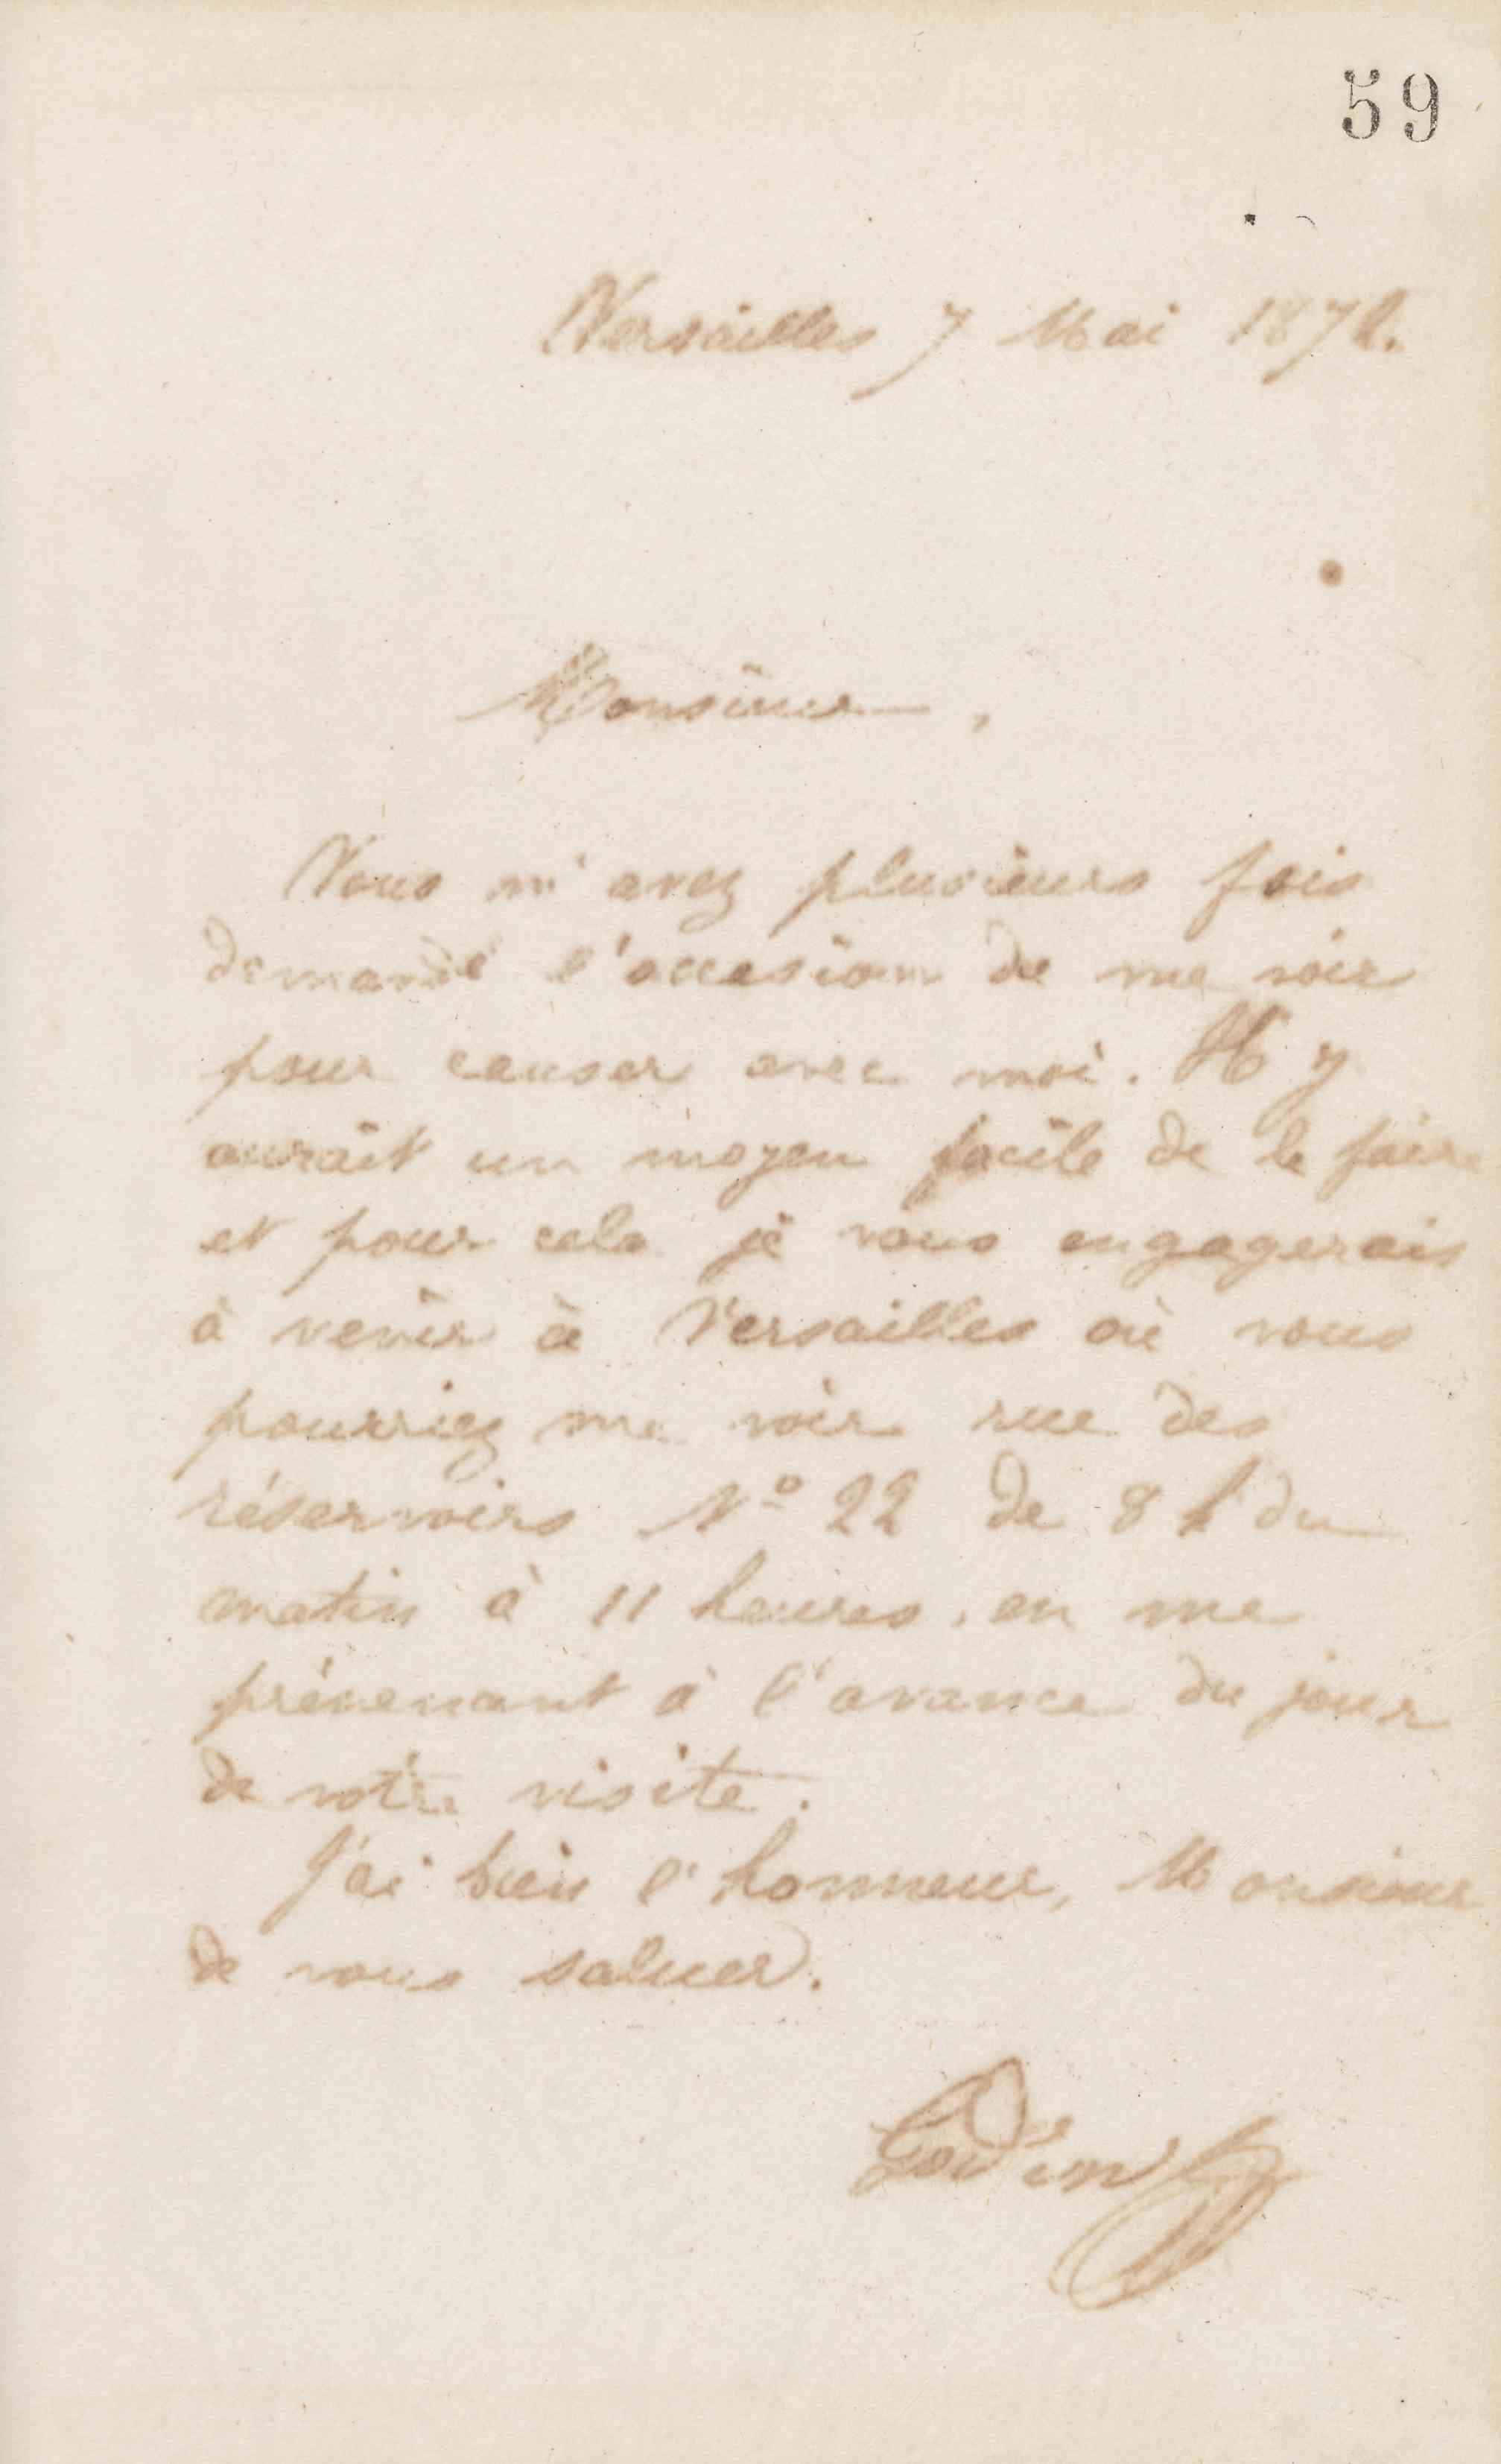 59
Versailles 7 Mai 1872.
Monsieur,
Vous m'avez plusieurs fois
demandé l'occasion de me voir
pour causer avec moi. Il y
aurait un moyen facile de le faire
et pour cela je vous engagerais
à venir à Versailles où vous
pourriez me voir rue des
réservoirs Nº 22 de 8 h du
matin à 11 heures, en me
prévenant à l'avance du jour
de votre visite.
J'ai bien l'honneur, Monsieur
de vous saluer.
Godin